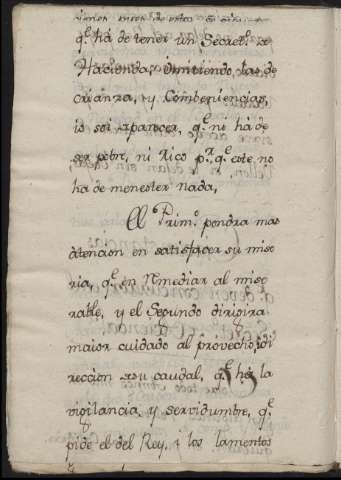 q.ͤ há de tener un Secret.º de
Hacienda, omitiendo, las de
crianza, y Combeniencias,
io soi de parecer, q.ͤ ni há de
ser pobre, ni Rico p.ʳ q.ͤ este no
ha de menester nada,
El Prim.º pondra mas
atencion en satisfacer su mise
ria, q.ͤ en Remediar al mise
rable, y el Segundo dirigira
maior cuidado al provecho, i di
reccion de su caudal, q.ͤ há la
vigilancia, y servidumbre, q.ͤ
pide el del Rey, i los lamentos